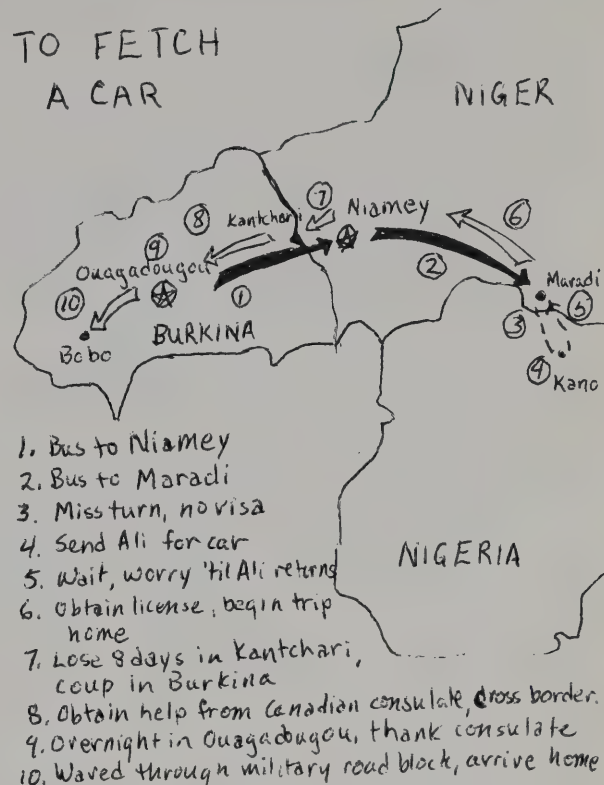 TO FETCH
A CAR
NIGER
Kantchari
7
Niamey
6
8
9
Ouagadougou
10
1
2
Maradi
3
5
BURKINA
Bobo
4
Kano
NIGERIA
1. Bus to Niamey
2. Bus to Maradi
3. Miss turn, no visa
4. Send Ali for car
5. Wait, worry 'til Ali returns
6. Obtain license, begin trip
home
7. Lose 8 days in Kantchari,
coup in Burkina
8. Obtain help from Canadian consulate, cross border.
9. Overnight in Ouagadougou, thank consulate
10. Waved through military road block, arrive home